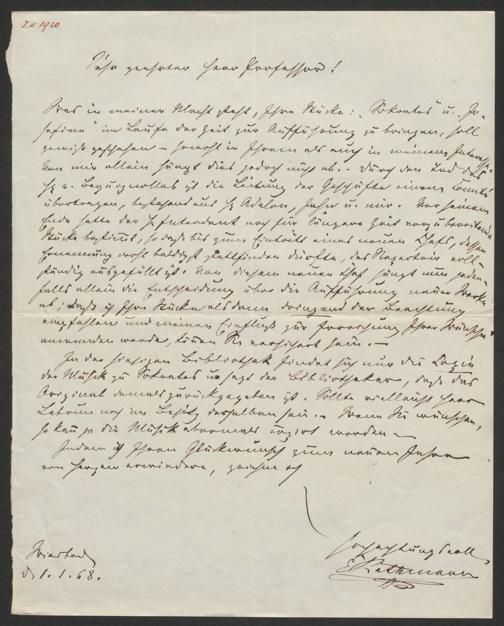 I.N. 1920
Sehr geehrter Herr Professor!
Was in meiner Macht steht, Ihre Stücke: „Sokrates" u. „Jo-
sefine" im Laufe der Zeit zur Aufführung zu bringen, soll
gewiß geschehen – sowohl in Ihrem als auch in meinem Interesse.
Von mir allein hängt dies jedoch nicht ab. – Durch den Tod des
H v. Bequignolles ist die Leitung der Geschäfte einem Comité
übertragen, bestehend aus H Adelon, u. mir. Vor seinem
Ende hatte der H Intendant noch für längere Zeit vorzubereitende
Stücke bestimmt, so daß bis zum Eintritt eines neuen Chefs, dessen
Ernennung wohl baldigst stattfinden dürfte, das Repertoir voll-
ständig ausgefüllt ist. Von diesem neuen Chef hängt nun jeden-
falls allein die Entscheidung über die Aufführung neuer Werke
ab; daß ich Ihre Stücke alsdann dringend der Beachtung
empfehlen und meinen Einfluß zur Erreichung Ihres Wunsches
anwenden werde, können Sie versichert sein. –
In der hiesigen Bibliothek findet sich nur die Copie
der Musik zu Sokrates u. sagt der Bibliothekar, daß das
Original damals zurückgegeben ist. Sollte vielleicht Herr
noch im Besitz desselben sein. – Wenn Sie wünschen,
so kann ja die Musik abermals copirt werden –
Indem ich Ihren Glückwunsch zum neuen Jahre
von Herzen erwiedere, zeichne ich
hochachtungsvoll
Rathmann
Wiesbaden
d 1.1.68.